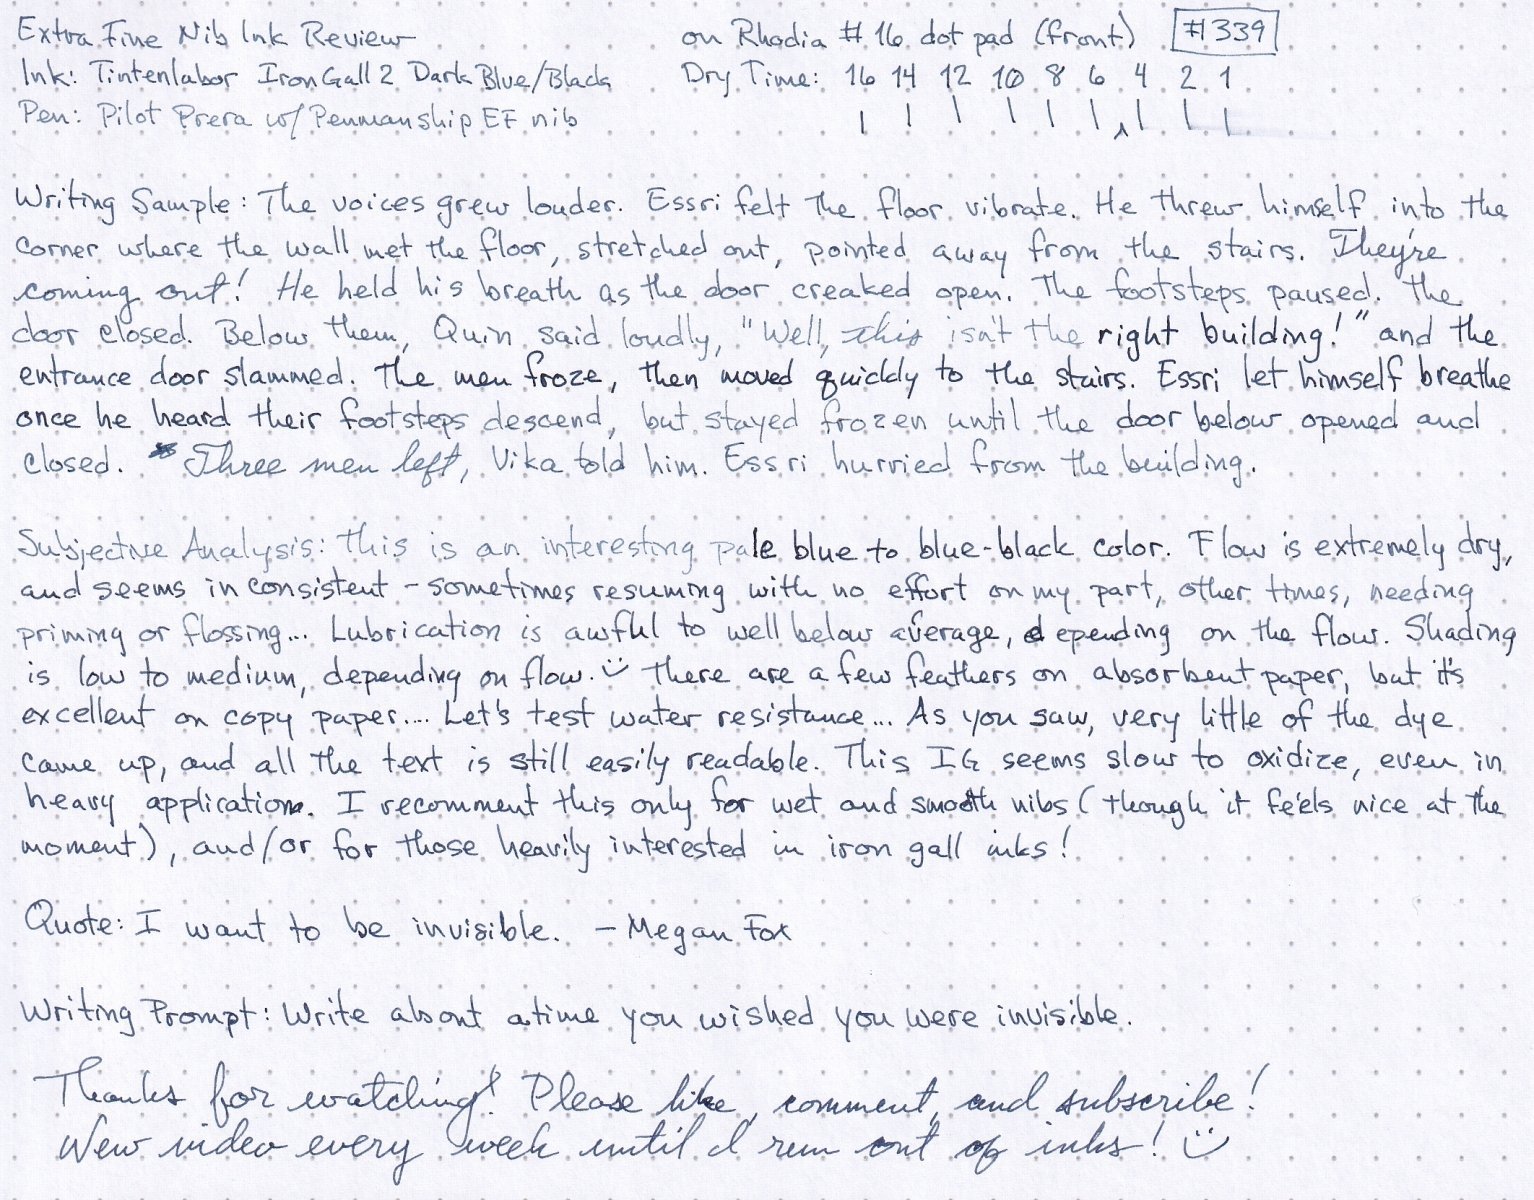 Extra Fine Nib Ink Review on Rhodia # 16 dot pad (front) #339
Ink: Tintenlabor Iron Gall 2 Dark Blue/Black Dry Time: 16 14 12 10 8 6 4 2 1
Pen: Pilot Prera w/ Penmanship EF nib
Writing Sample: The voices grew louder. Essri felt the floor vibrate. He threw himself into the
corner where the wall met the floor, stretched out, pointed away from the stairs. They're
coming out! He held his breath as the door creaked open. The footsteps paused. The
door closed. Below them, Quin said loudly, "Well, this isn't the right building!" and the
entrance door slammed. The men froze, then moved quickly to the stairs. Essri let himself breathe
once he heard their footsteps descend, but stayed frozen until the door below opened and
closed. Three men left, Vika told him. Essri hurried from the building.
Subjective Analysis: This is an interesting pale blue to blue-black color. Flow is extremely dry,
and seems inconsistent - sometimes resuming with no effort on my part, other times, needing
priming or flossing... Lubrication is awful to well below average, depending on the flow. Shading
is low to medium, depending on flow. There are a few feathers on absorbent paper, but it's
excellent on copy paper.... Let's test water resistance... As you saw, very little of the dye
came up, and all the text is still easily readable. This IG seems slow to oxidize, even in
heavy application. I recomment this only for wet and smooth nibs (though it feels nice at the
moment), and/or for those heavily interested in iron gall inks!
Quote: I want to be invisible. - Megan Fox
Writing Prompt: Write about a time you wished you were invisible.
Thanks for watching! Please like, comment, and subscribe!
New video every week until I run out of inks!